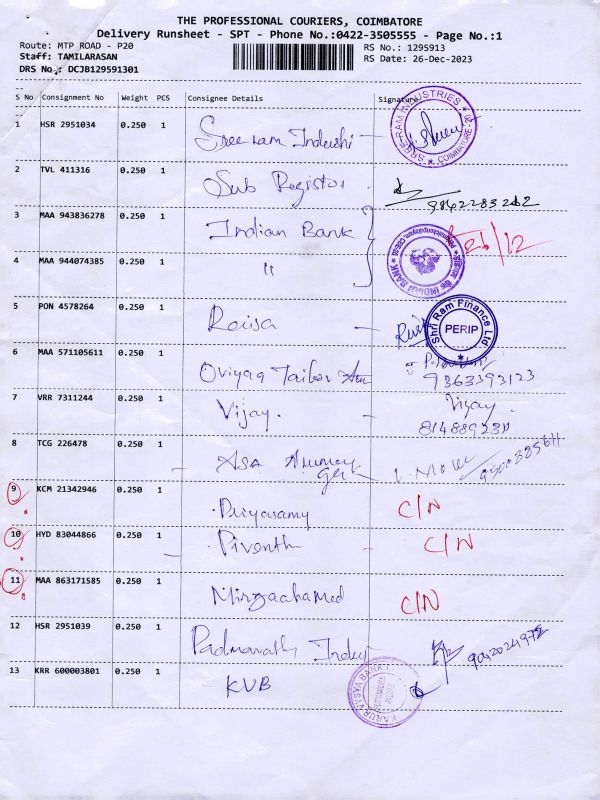 THE PROFESSIONAL COURIERS, COIMBATORE
Delivery Runsheet - SPT - Phone No.:0422-3505555 - Page No.:1
Route: MTP ROAD - P20
RS No.: 1295913
Staff: TAMILARASAN
RS Date: 26-Dec-2023
DRS No.: DCJB129591301
S No Consignment No Weight PCS Consignee Details Signature
1 HSR 2951034 0.250 1 Sree ram
SREE RAM INDUSTRIES
COIMBATORE
2 TVL 411316 0.250 1 Sub Registor
3 MAA 943836278 0.250 1 Indian Bank
26/12
4 MAA 944074385 0.250 1 "
INDIAN BANK
5 PON 4578264 0.250 1 Raisa
Shri Ram Finance Ltd
PERIP
6 MAA 571105611 0.250 1 Oviyaa Tailor
9363393123
7 VRR 7311244 0.250 1 Vijay.
Vijay
8 TCG 226478 0.250 1 ASA
9 KCM 21342946 0.250 1 C/N
10 HYD 83044866 0.250 1 Piventh C/N
11 MAA 863171585 0.250 1 Mirzaahamed C/N
12 HSR 2951039 0.250 1
9042024972
13 KRR 600003801 0.250 1 - KVB
KARUR VYSYA BANK